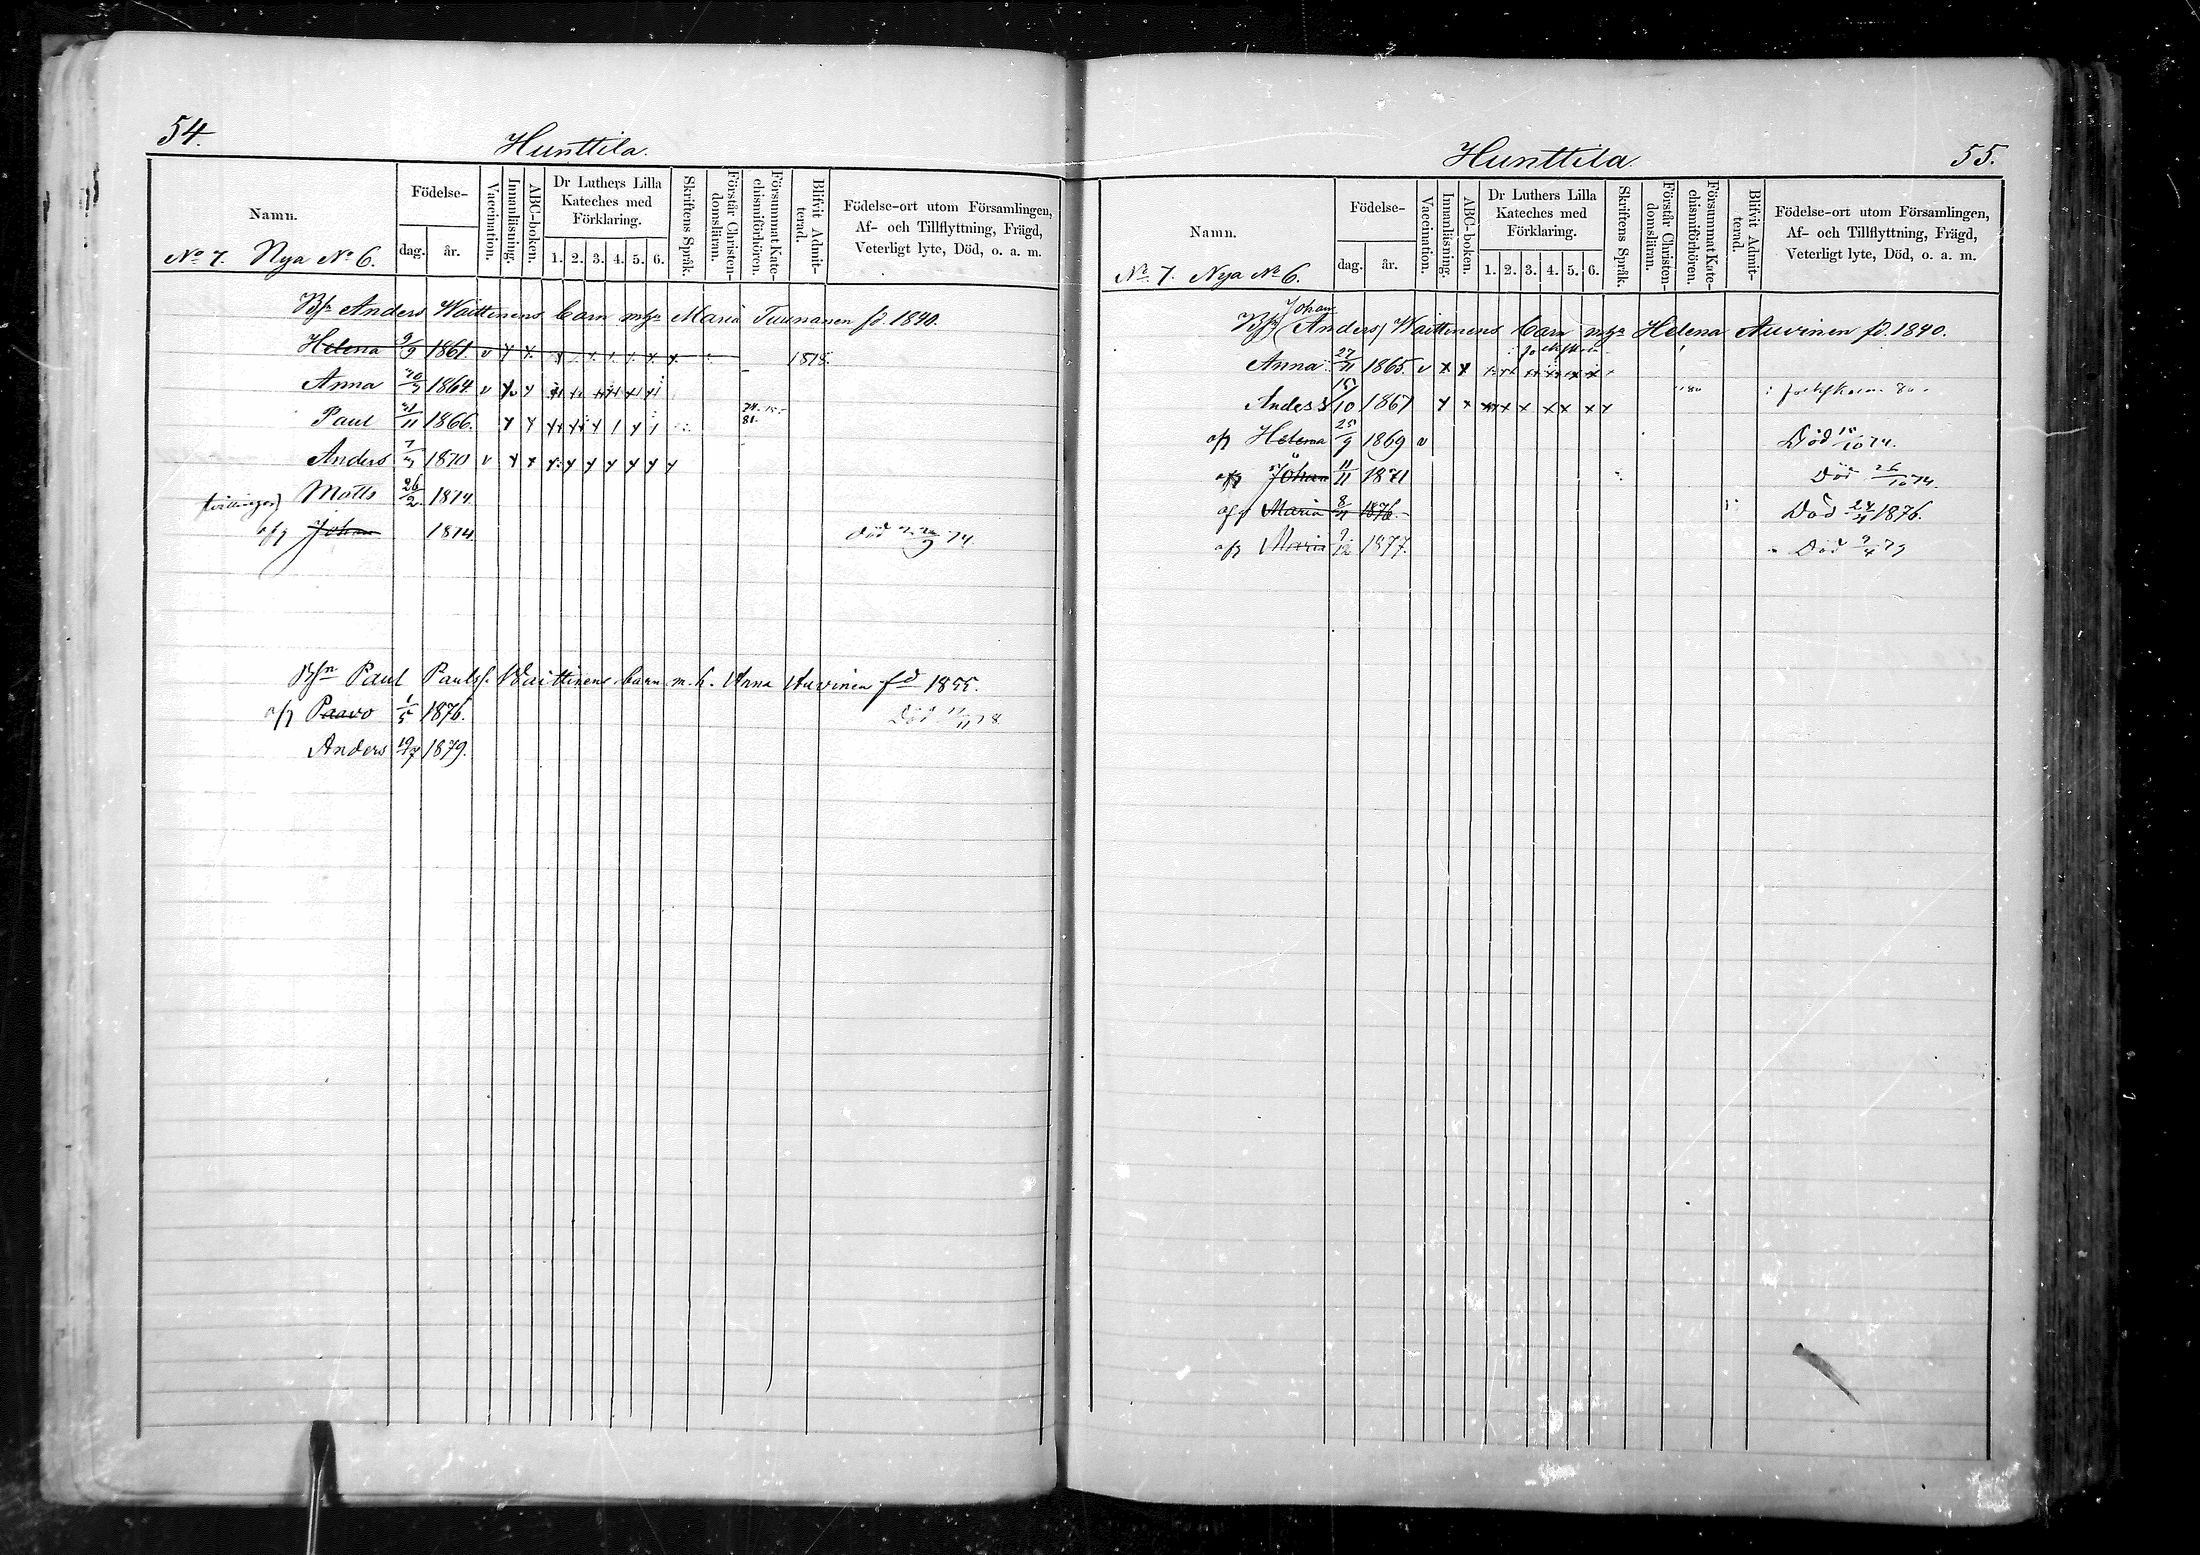 54.
Hunttila.
Namn.
Födelse-
dag. år.
Vaccination.
Innanläsning.
ABC-boken.
Dr Luthers Lilla
Kateches med
Förklaring.
1. 2. 3. 4. 5. 6.
Skriftens Språk.
Förstår Christen-
domsläran.
Försummat Kate-
chismiförhören.
Blifvit Admit-
terad.
Födelse-ort utom Församlingen,
Af- och Tillflyttning, Frägd,
Veterligt lyte, Död, o. a. m.
No 7. Nya No 6.
Bn Anders Waittinens barn m Maria Tuunanen fd. 1840.
Helena 1861. v x x
Anna 1864 v x x
Paul 11 1866. x x
Anders 1870 v x x x x x x x x x
tvillingar) Matts 26/2 1874.
Johan 1874 Död 74.
Bn Paul Paulss. Waittinens barn m. h. Anna Auvinen fd 1855.
Paavo 1/5 1876. Död 11 78
Anders 1879.
Hunttila
55.
Namn.
Födelse-
dag. år.
Vaccination.
Innanläsning.
ABC-boken.
Dr Luthers Lilla
Kateches med
Förklaring.
1. 2. 3. 4. 5. 6.
Skriftens Språk.
Förstår Christen-
domsläran.
Försummat Kate-
chismiförhören.
Blifvit Admit-
terad.
Födelse-ort utom Församlingen,
Af- och Tillflyttning, Frägd,
Veterligt lyte, Död, o. a. m.
No 7. Nya No 6.
Johan
(Anders) Waittinens barn m Helena Auvinen fd. 1840.
Anna 1865. v x x
Anders 15/10 1867 x x
Helena 25/9 1869 v Död 15/10 74.
Johan 11/11 1871 Död 26/10 74.
Maria 1876. Död 1876.
Maria 9/12 1877. Död